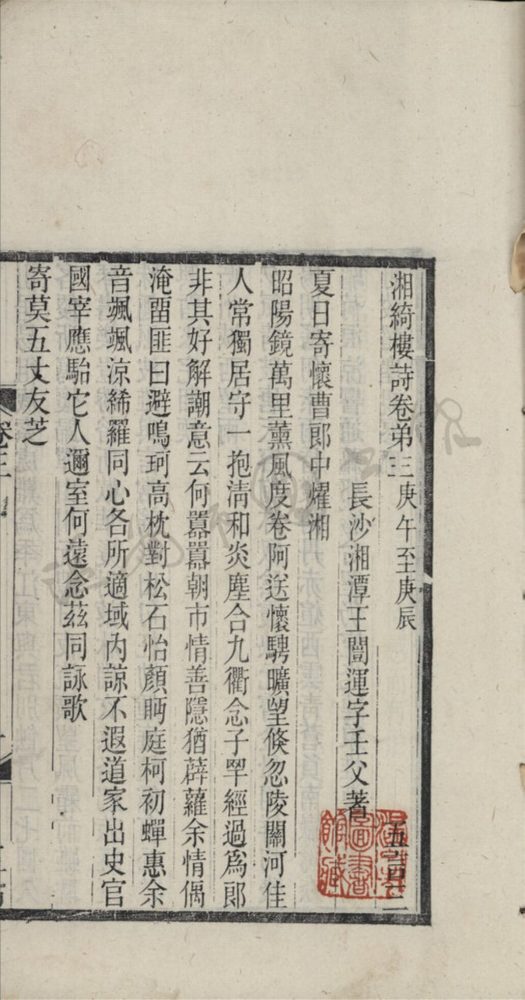 湘綺樓詩卷弟三庚午至庚辰
五言三
長沙湘潭王闓運字壬父著
夏日寄懷曹郎中耀湘
昭陽鏡萬里薰風度卷阿送懷騁曠望倏忽陵關河佳
人常獨居守一抱淸和炎塵合九衢念子罕經過爲郞
非其好解謿意云何囂囂朝市情善隱猶薜蘿余情偶
淹畱匪曰避鳴珂高枕對松石怡顏眄庭柯初蟬惠余
音颯颯涼絺羅同心各所適域內諒不遐道家出史官
國宰應駘它人邇室何遠念茲同詠歌
寄莫五丈友芝
卷三